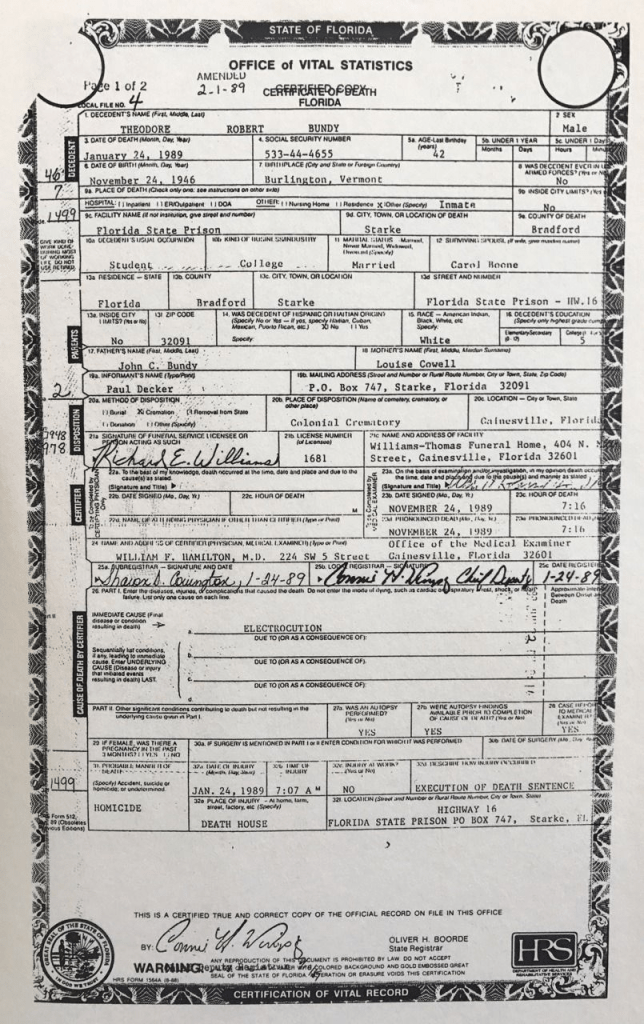 STATE OF FLORIDA
OFFICE of VITAL STATISTICS
AMENDED
Page 1 of 2
2-1-89
CERTIFIED COPY
CERTIFICATE OF DEATH
FLORIDA
LOCAL FILE NO. 4
1. DECEDENT'S NAME (First, Middle, Last)
THEODORE ROBERT BUNDY
2 SEX
Male
3. DATE OF DEATH (Month, Day, Year)
January 24, 1989
4. SOCIAL SECURITY NUMBER
533-44-4655
5a. AGE-Last Birthday (years)
42
5b. UNDER 1 YEAR
Months Days
5c. UNDER 1 Day
Hours
DECEDENT
6. DATE OF BIRTH (Month, Day, Year)
November 24, 1946
7. BIRTHPLACE (City and State or Foreign Country)
Burlington, Vermont
8. WAS DECEDENT EVER IN U
ARMED FORCES?
No
46
7
9a. PLACE OF DEATH (Check only one: see instructions on other side)
HOSPITAL: Inpatient ER/Outpatient DOA OTHER: Nursing Home Residence X Other (Specify) Inmate
9b. INSIDE CITY LIMITS?
No
1499
9c. FACILITY NAME (If not institution, give street and number)
Florida State Prison
9d. CITY, TOWN, OR LOCATION OF DEATH
Starke
9e. COUNTY OF DEATH
Bradford
GIVE KIND OF
WORK DONE
DURING MOST
OF WORKING
LIFE. DO NOT
USE RETIRED.
10a. DECEDENT'S USUAL OCCUPATION
Student
10b. KIND OF BUSINESS/INDUSTRY
College
11. MARITAL STATUS - Married, Never Married, Widowed, Divorced (Specify)
Married
12. SURVIVING SPOUSE (If wife, give maiden name)
Carol Boone
13a. RESIDENCE - STATE
Florida
13b. COUNTY
Bradford
13c. CITY, TOWN, OR LOCATION
Starke
13d. STREET AND NUMBER
Florida State Prison - HW.16
13e. INSIDE CITY LIMITS? (Yes or No)
No
13f. ZIP CODE
32091
14. WAS DECEDENT OF HISPANIC OR HAITIAN ORIGIN?
(Specify No or Yes - If yes, specify Haitian, Cuban,
Mexican, Puerto Rican, etc.) X No Yes
Specify:
15. RACE - American Indian,
Black, White, etc
Specify:
White
16. DECEDENT'S EDUCATION
(Specify only highest grade
Elementary/Secondary College
5
PARENTS
17. FATHER'S NAME (First, Middle, Last)
John C. Bundy
18. MOTHER'S NAME (First, Middle, Maiden Surname)
Louise Cowell
2
19a. INFORMANT'S NAME (Type/Print)
Paul Decker
19b. MAILING ADDRESS (Street and Number or Rural Route Number, City or Town, State, Zip Code)
P.O. Box 747, Starke, Florida 32091
DISPOSITION
20a. METHOD OF DISPOSITION
Burial X Cremation Removal from State
Donation Other (Specify)
20b. PLACE OF DISPOSITION (Name of cemetery, crematory, or
other place)
Colonial Crematory
20c. LOCATION - City or Town, State
Gainesville, Florida
978
21a. SIGNATURE OF FUNERAL SERVICE LICENSEE OR
PERSON ACTING AS SUCH
Richard E. Williams
21b. LICENSE NUMBER
(of Licensee)
1681
21c. NAME AND ADDRESS OF FACILITY
Williams-Thomas Funeral Home, 404 N.
Street, Gainesville, Florida 32601
CERTIFIER
22a. To the best of my knowledge, death occurred at the time, date and place and due to the
cause(s) as stated.
(Signature and Title)
22b. DATE SIGNED (Mo., Day, Yr.)
22c. HOUR OF DEATH
M
22d. NAME OF ATTENDING PHYSICIAN IF OTHER THAN CERTIFIER (Type or Print)
23a. On the basis of examination and/or investigation, in my opinion death occurred
the time, date and place and due to the cause(s) and manner as stated
(Signature and Title)
23b. DATE SIGNED (Mo., Day, Yr.)
NOVEMBER 24, 1989
23c. HOUR OF DEATH
7:16
23d. PRONOUNCED DEAD (Mo., Day, Yr.)
NOVEMBER 24, 1989
23e. PRONOUNCED DEAD
7:16
24. NAME AND ADDRESS OF CERTIFIER (PHYSICIAN, MEDICAL EXAMINER) (Type or Print)
Office of the Medical Examiner
WILLIAM F. HAMILTON, M.D. 224 SW 5 Street Gainesville, FLorida 32601
25a. SUBREGISTRAR - SIGNATURE AND DATE
Sharon D. Covington, 1-24-89
25b. LOCAL REGISTRAR - SIGNATURE
Chief Deputy
25c. DATE REGISTERED
1-24-89
CAUSE OF DEATH BY CERTIFIER
26. PART I. Enter the diseases, injuries, or complications that caused the death. Do not enter the mode of dying, such as cardiac or respiratory arrest, shock, or heart
failure. List only one cause on each line.
Approximate Interval
Between Onset and
Death
IMMEDIATE CAUSE (Final
disease or condition
resulting in death)
a. ELECTROCUTION
DUE TO (OR AS A CONSEQUENCE OF):
Sequentially list conditions,
if any, leading to immediate
cause. Enter UNDERLYING
CAUSE (Disease or injury
that initiated events
resulting in death) LAST.
b.
DUE TO (OR AS A CONSEQUENCE OF):
c.
DUE TO (OR AS A CONSEQUENCE OF):
d.
PART II. Other significant conditions contributing to death but not resulting in the
underlying cause given in Part I.
27a. WAS AN AUTOPSY
PERFORMED?
(Yes or No)
YES
27b. WERE AUTOPSY FINDINGS
AVAILABLE PRIOR TO COMPLETION
OF CAUSE OF DEATH? (Yes or No)
YES
28. CASE REPORTED
TO MEDICAL
EXAMINER?
YES
29. IF FEMALE, WAS THERE A
PREGNANCY IN THE PAST
3 MONTHS? YES NO
30a. IF SURGERY IS MENTIONED IN PART I or II ENTER CONDITION FOR WHICH IT WAS PERFORMED
30b. DATE OF SURGERY
1499
31. PROBABLE MANNER OF
DEATH
(Specify) Accident, suicide or
homicide, or undetermined
HOMICIDE
32a. DATE OF INJURY
(Month, Day, Year)
JAN. 24, 1989
32b. TIME OF
INJURY
7:07 A M
32c. INJURY AT WORK?
(Yes or No)
NO
32d. DESCRIBE HOW INJURY OCCURRED
EXECUTION OF DEATH SENTENCE
32e. PLACE OF INJURY - At home, farm,
street, factory, etc (Specify)
DEATH HOUSE
32f. LOCATION (Street and Number or Rural Route Number, City or Town, State)
HIGHWAY 16
FLORIDA STATE PRISON PO BOX 747, Starke, FL
Form 512,
89 (Obsoletes
vious Editions)
THIS IS A CERTIFIED TRUE AND CORRECT COPY OF THE OFFICIAL RECORD ON FILE IN THIS OFFICE
BY:
Deputy Registrar
OLIVER H. BOORDE
State Registrar
WARNING:
ANY REPRODUCTION OF THIS DOCUMENT IS PROHIBITED BY LAW. DO NOT ACCEPT
COLORED BACKGROUND AND GOLD EMBOSSED GREAT
SEAL OF THE STATE OF FLORIDA. ALTERATION OR ERASURE VOIDS THIS CERTIFICATION
HRS FORM 1564A (9-88)
HRS
DEPARTMENT OF HEALTH AND
REHABILITATIVE SERVICES
GREAT SEAL OF THE STATE OF FLORIDA
IN GOD WE TRUST
CERTIFICATION OF VITAL RECORD